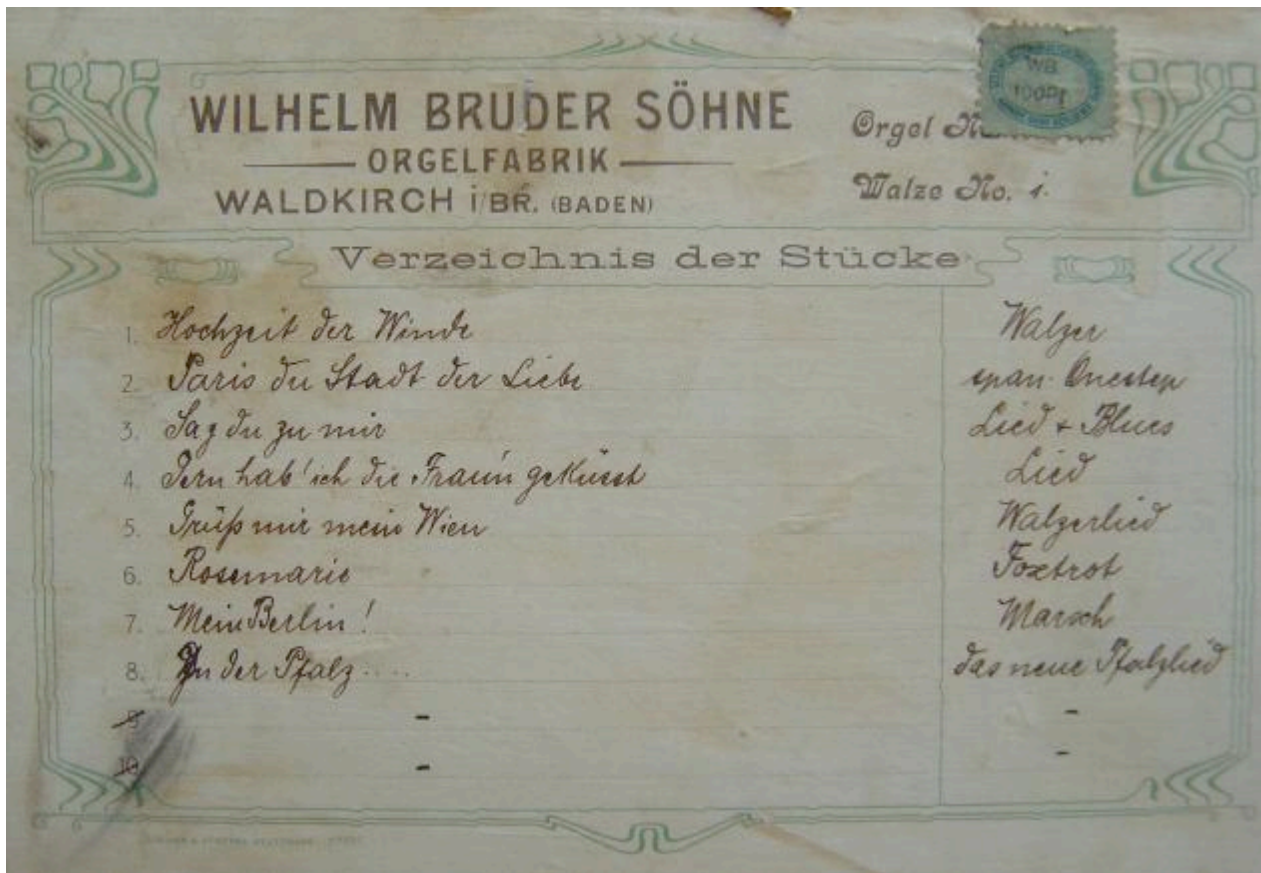 WILHELM BRUDER SÖHNE
ORGELFABRIK
WALDKIRCH i/BR. (BADEN)
Orgel No.
WB
100Pf
Walze No. 1.
Verzeichnis der Stücke
1. Hochzeit der Winde Walzer
2. Paris du Stadt der Liebe span. Onestep
3. Sag du zu mir Lied + Blues
4. Gern hab' ich die Frau'n geküsst Lied
5. Grüß mir mein Wien Walzerlied
6. Rosemarie Foxtrot
7. Mein Berlin! Marsch
8. In der Pfalz.... das neue Pfalzlied
9 - -
10 - -